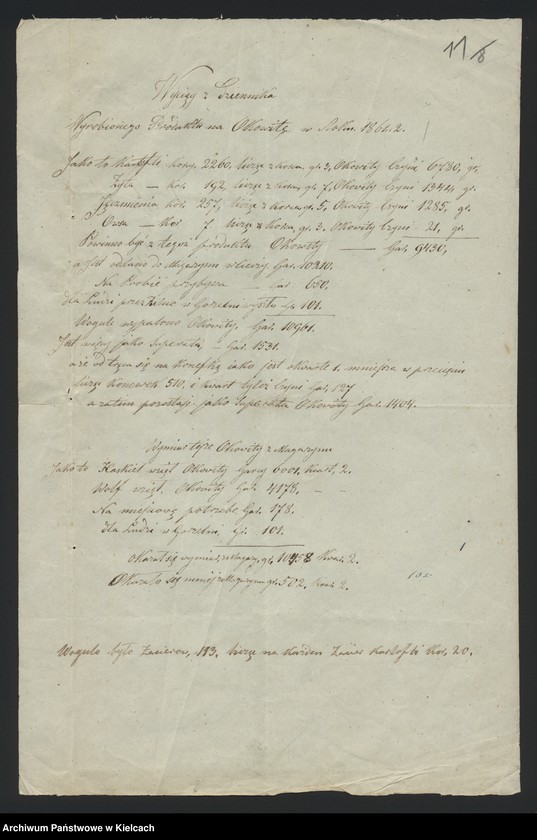 11/8
Wyciąg z Dziennika
Wyrobionego Produktu na Okowitę w Roku 1861/2.
Jako to Kartofli kor. 2260, licząc z korca gr. 3, Okowity czyni 6780, gr.
Żyta — kor. 192, licząc z korca gr. 7, Okowity czyni 1344, gr.
Jęczmienia kor. 257, licząc z korca gr. 5, Okowity czyni 1285, gr.
Owsa — Kor 7 licząc z korca, gr. 3, Okowity czyni 21, gr.
Powinno być z tegoż produktu Okowity — Gar. 9430,
a jest oddano do Magazynu w Gar. 10210.
Na Probie przybywa — Gar 650.
dla Ludzi w Gorzelni Gr 101.
Wogule wypalono Okowity, Gar. 10961.
Jest więcej jako Superata, Gar. 1531.
a że odtrąca się na Konefkę iako jest okwartę 1. mniejsza w przecięciu
licząc konewek 510, i kwart tyleż czyni Gar. 127
a zatem pozostaje jako Superatta Okowity Gar. 1404.
Wymiar tejże Okowity z Magazynu
Jako to Kaskiel wziął Okowity garcy 6001, Kwart, 2.
Wolf wziął Okowity Gar. 4178, — —
Na miejscową potrzebę Gar. 178.
dla Ludzi w Gorzelni, Gr. 101.
Okazał się wymiar z Magaz. gr. 10458 Kwar. 2.
Okazało się mniej z Magazynu gr. 502, kwar. 2.
Wogule było Zacierow, 113, licząc na każden Zacier Kartofli Kor. 20.
Archiwum Państwowe w Kielcach